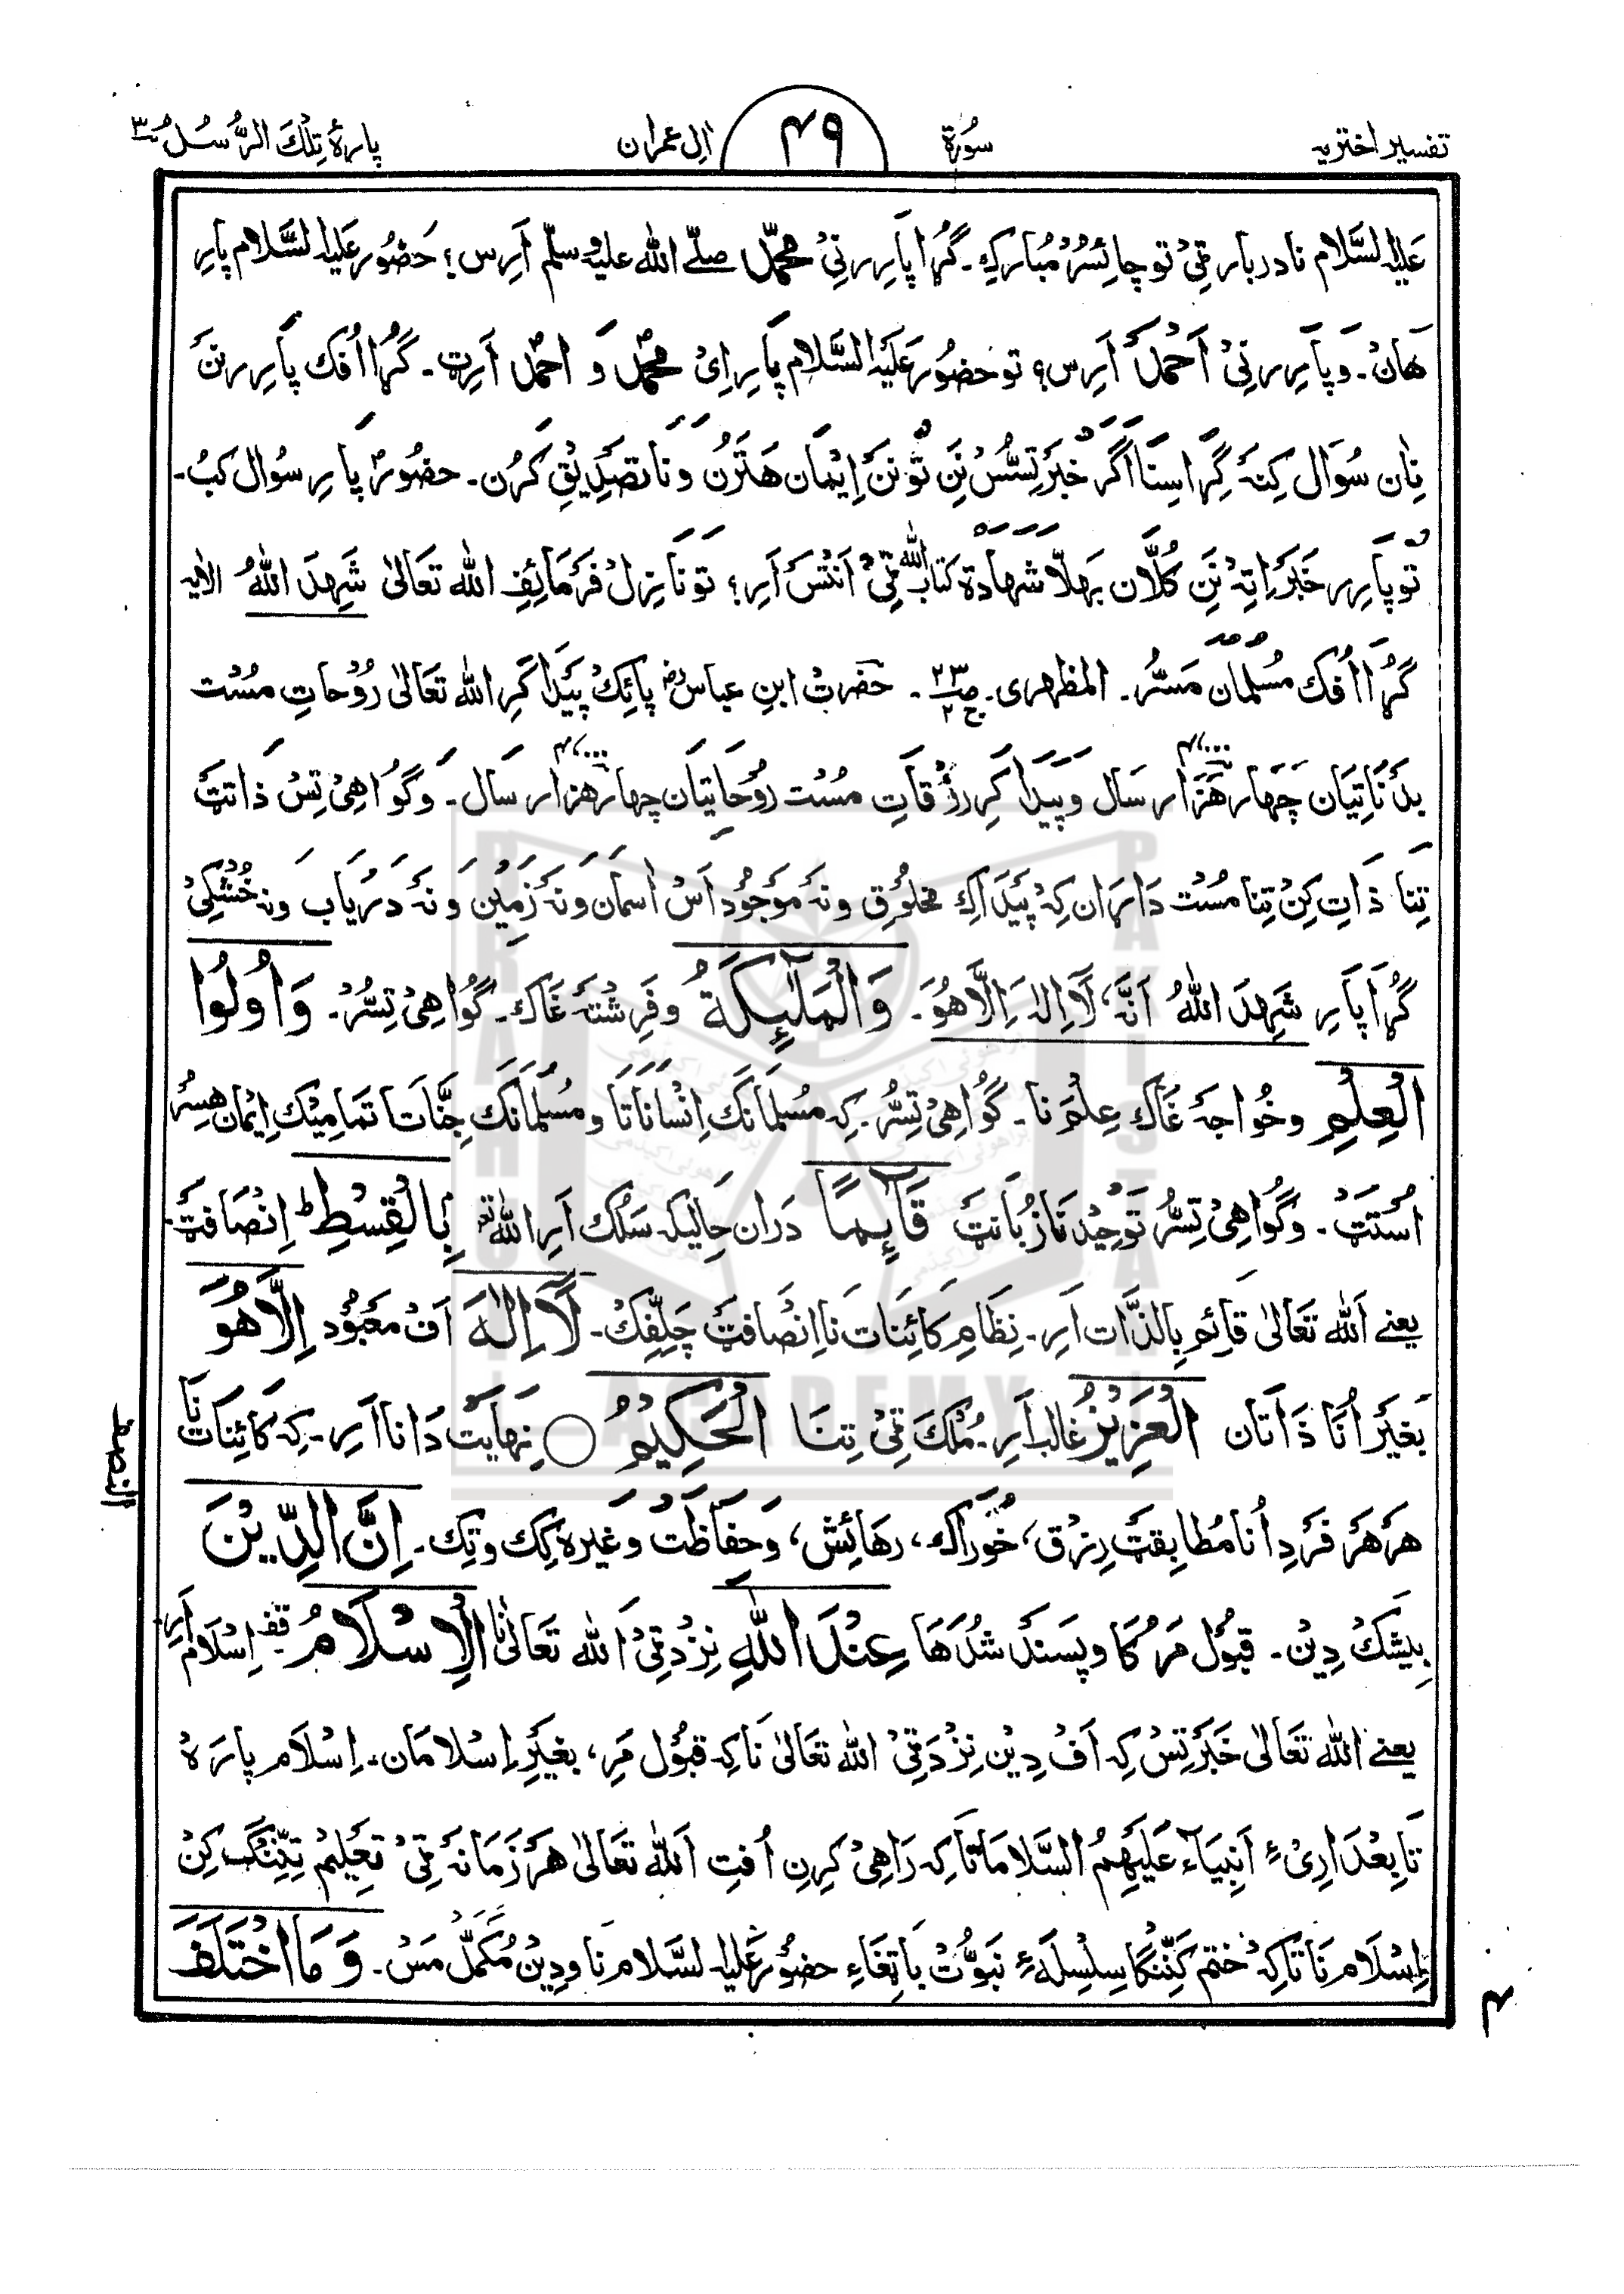 تفسیر اختریہ سُورة ۴۹ اٰلِ عمران پارۂ تِلْكَ الرُّسُلُ ۳
عَلَیہِ السَّلَام نا دربار ٹِیْ تو چائسُرْ مُبارکِ۔ گُڑا پارِر نِیْ مُحَمَّد صلّے اللہ علیہ وسلّم اَرِس؟ حَضُور عَلَیہِ السَّلَام پارِ
ھَانْ۔ وَ پارِر نِیْ اَحْمَد اَرِس؟ تو حضُور عَلَیہِ السَّلَام پارِ اِیْ مُحَمَّد وَ احمَد اَرِٹ۔ گُڑا اُفک پارِر نَنْ
نِان سُوَال کِنَہ گِڑاسِنَا اَگَر خَبَر تِسُّسْ نَنِ تَو نَنْ اِیْمَان ھَتَرُن وَ نَا تصَدِیْق کَرُن۔ حضُورْ پارِ سُوال کبُ۔
تَو پارِر خَبَر اِتِہْ نَنِ کُلَّان بَھلَّا شَہَادَة کتاب اللہ ٹِیْ اَنتَسْ اَرِ؟ تَو نَازِل فَرمَائِفِ اللہ تَعَالیٰ شَهِدَ اللّٰهُ الایہ
گُڑا اُفک مُسلمَان مَسُّر۔ المظہری۔ صـ۲۳ ج۲۔ حَضرتْ ابنِ عباسؓ پائِکْ پَیْدَا کَرِ اللہ تَعَالیٰ رُوْحَاتِ مُسْت
بدَنَاتِیَان چَہَار ھَزَار سَال وَ پَیْدَا کَرِ رِزْقَاتِ مُسْت رُوْحَاتِیَان چہار ھزار سَال۔ وَ گُوَاھِیْ تِسْ ذَاتَٹ
تِنَا ذَاتِ کِنْ تِنَا مُسْت دَارَان کِہْ پَیْدَا کِ مخلُوْق وَنَہ مَوْجُوْد اَسْ اٰسْمَان وَنَہ زَمِیْن وَنَہ دَرْیَاب وَنَہ خُشْکِیْ
گُڑَا پارِ شَهِدَ اللّٰهُ اَنَّہٗ لَاۤ اِلٰهَ اِلَّا هُوَ۔ وَالْمَلٰٓئِكَةُ وفَرِشْتَہ غَاک۔ گُوَاھِیْ تِسُّرْ۔ وَاُولُوا
الْعِلْمِ وخُواجَہ غَاک عِلْم نا۔ گُوَاھِیْ تِسُّر۔ کِہ مُسلمَانَک اِنْسَانَاتَا ومُسْلمَانَک جِنَّات تَا تَمَامِیْک اِیْمَان ھیسُر
اُسْتَٹ۔ وگُوَاھِیْ تِسُّر تَوْحِیْد نَا زُبَانَٹ قَآئِمًا دَران حَالیکہ سَلُک اَرِ اللہ تعہ بِالْقِسْطِ ؕ اِنْصَافَٹ
یعنے اَللہ تَعَالیٰ قَائِم بِالذَّات اَرِ۔ نِظَامِ کَائِنَات نَا اِنْصَافَٹ چَلِّفِک۔ لَاۤ اِلٰهَ اَفْ مَعْبُوْد اِلَّا هُوَ
بَغَیْر اُنَا ذَاتَان الْعَزِیْزُ غَالِب اَرِ۔ مُلْک ٹِیْ تِنَا الْحَكِیْمُ ○ نِہَایَت دَانَا اَرِ۔ کِہ کَائِنَات نَا
النصف
ھَر ھَر فَرْدِ اُنَا مُطَابِقَٹ رِزْق، خُوراک، رھَائِش، وَحِفَاظَت وَغَیرہ کِک وتِک۔ اِنَّ الدِّیْنَ
بِیْشَکْ دِیْن۔ قَبُوْل مَرُکَا وپَسَنْد شُدَھا عِنْدَ اللّٰهِ نِزْد ٹِیْ اللہ تَعَالیٰ نَا الْاِسْلَامُ ۟ قف اِسْلَام اَرِ۔
یعنے اللہ تَعَالیٰ خَبَر تِسْ کِہ اَفْ دِیْن نِزْد ٹِیْ اللہ تَعَالیٰ نَا کِہ قَبُوْل مَرِ، بَغَیرِ اِسْلَامَان۔ اِسْلَام پارَہ
تَابِعْدَارِیْءِ اَنبِیَاء عَلَیْھِمُ السَّلَام تَا کِہ رَاھِیْ کَرِن اُفتِ اَللہ تَعَالیٰ ھَر زَمَانَہ ٹِیْ تَعْلِیْم تِنِّنْگ کِنْ
اِسْلَام نَا تَاکِہ ختم کَنِّنْگَا سِلْسِلَہءِ نَبُوَّتْ بَاتِّفَاءِ حضُور عَلَیہِ السَّلَام نَا ودِیْن مُکَمَّل مَسْ۔ وَمَا اخْتَلَفَ